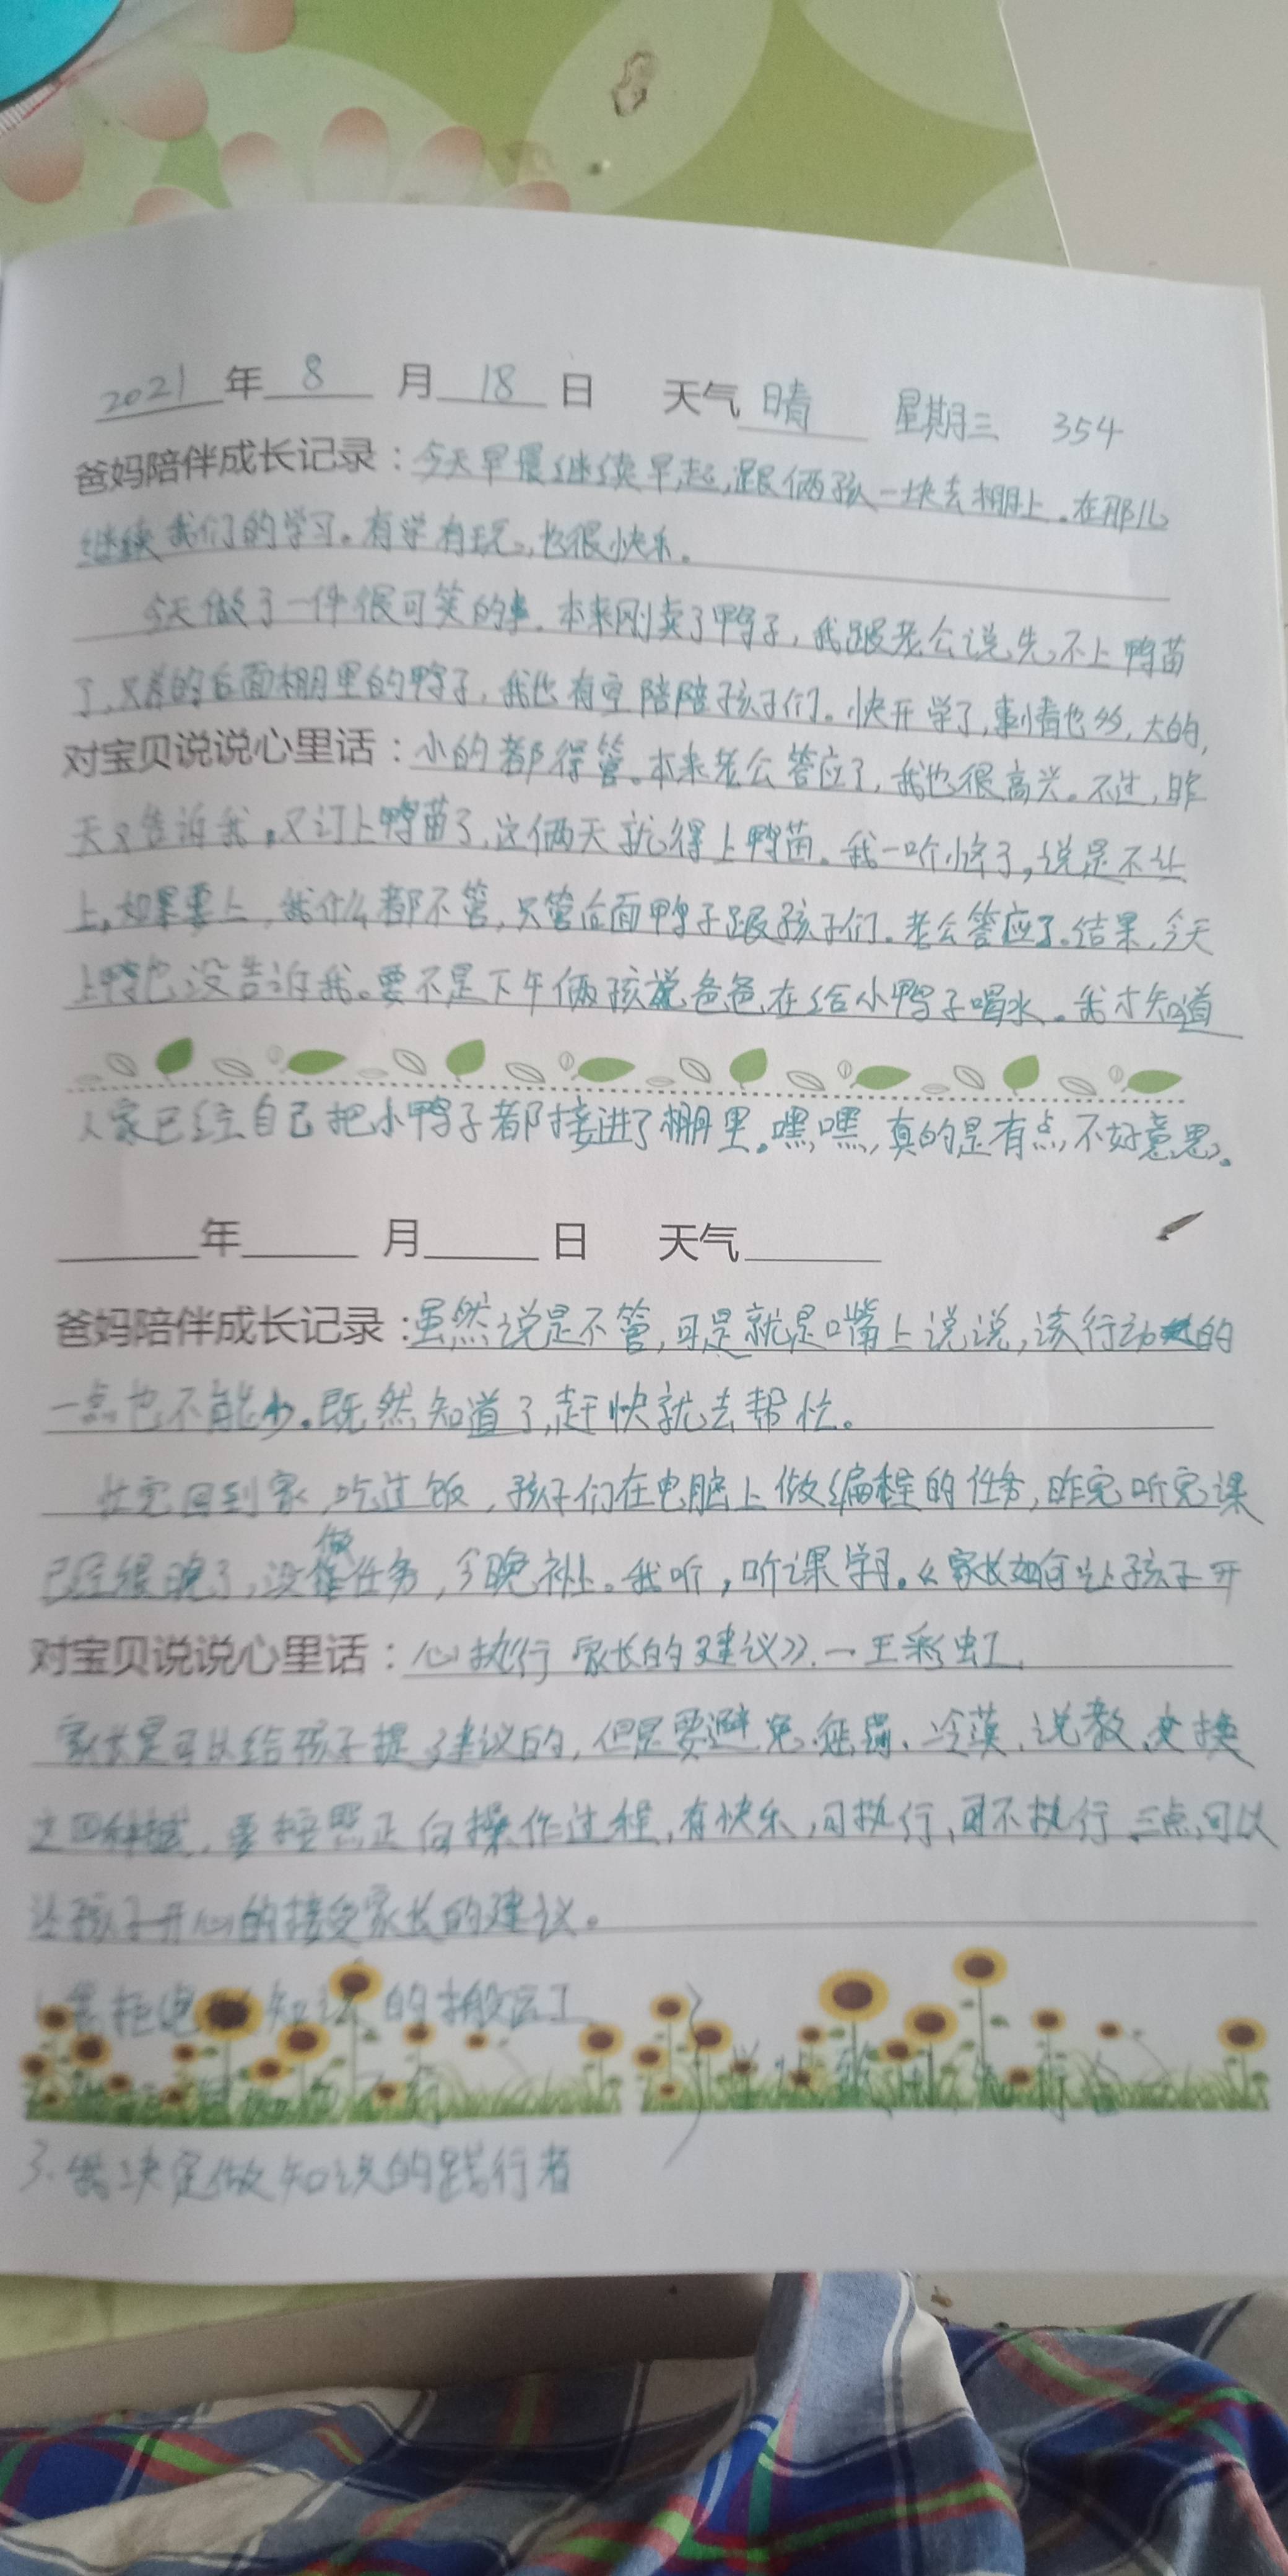 2021年 8 月 18 日 天气 晴 星期三 354
爸妈陪伴成长记录：今天早晨继续早起，跟俩孩一块去棚上。在那儿
继续我们的学习。有学有玩，也很快乐。
今天做了一件很可笑的事。本来刚卖了鸭子，我跟老公说先不上鸭苗
了，只养的后面棚里的鸭子，我也有空陪陪孩子们。快开学了，事情也多，大的，
对宝贝说说心里话：小的都得管。本来老公答应了，我也很高兴。不过，昨
天又告诉我，又订上鸭苗了，这俩天就得上鸭苗。我一听，说是不让
上，如果要上，我什么都不管，只管后面鸭子跟孩子们。老公答应了。结果，今天
上鸭也没告诉我。要不是下午俩孩说爸爸在给小鸭子喝水。我才知道
人家已经自己把小鸭子都接进了棚里。嘿嘿，真的是有点不好意思。
年 月 日 天气
爸妈陪伴成长记录：虽然说是不管，可是就是嘴上说说，该行动的
一点也不能少。既然知道了，赶快就去帮忙。
忙完回到家，吃过饭，孩子们在电脑上做编程的任务，昨完听完课
已经很晚了，没做任务，今晚补上。我听，听课学习。《家长如何让孩子开
对宝贝说说心里话：心执行 家长的建议》.一王彩虹
家长是可以给孩子提建议的，但是要避免.惩罚、冷漠、说教、交换
之四种，要按照正向操作过程，有快乐，可执行，可不执行三点，可以
让孩子开心的接受家长的建议。
拒绝 知识的搬运工
3.我决定做知识的践行者